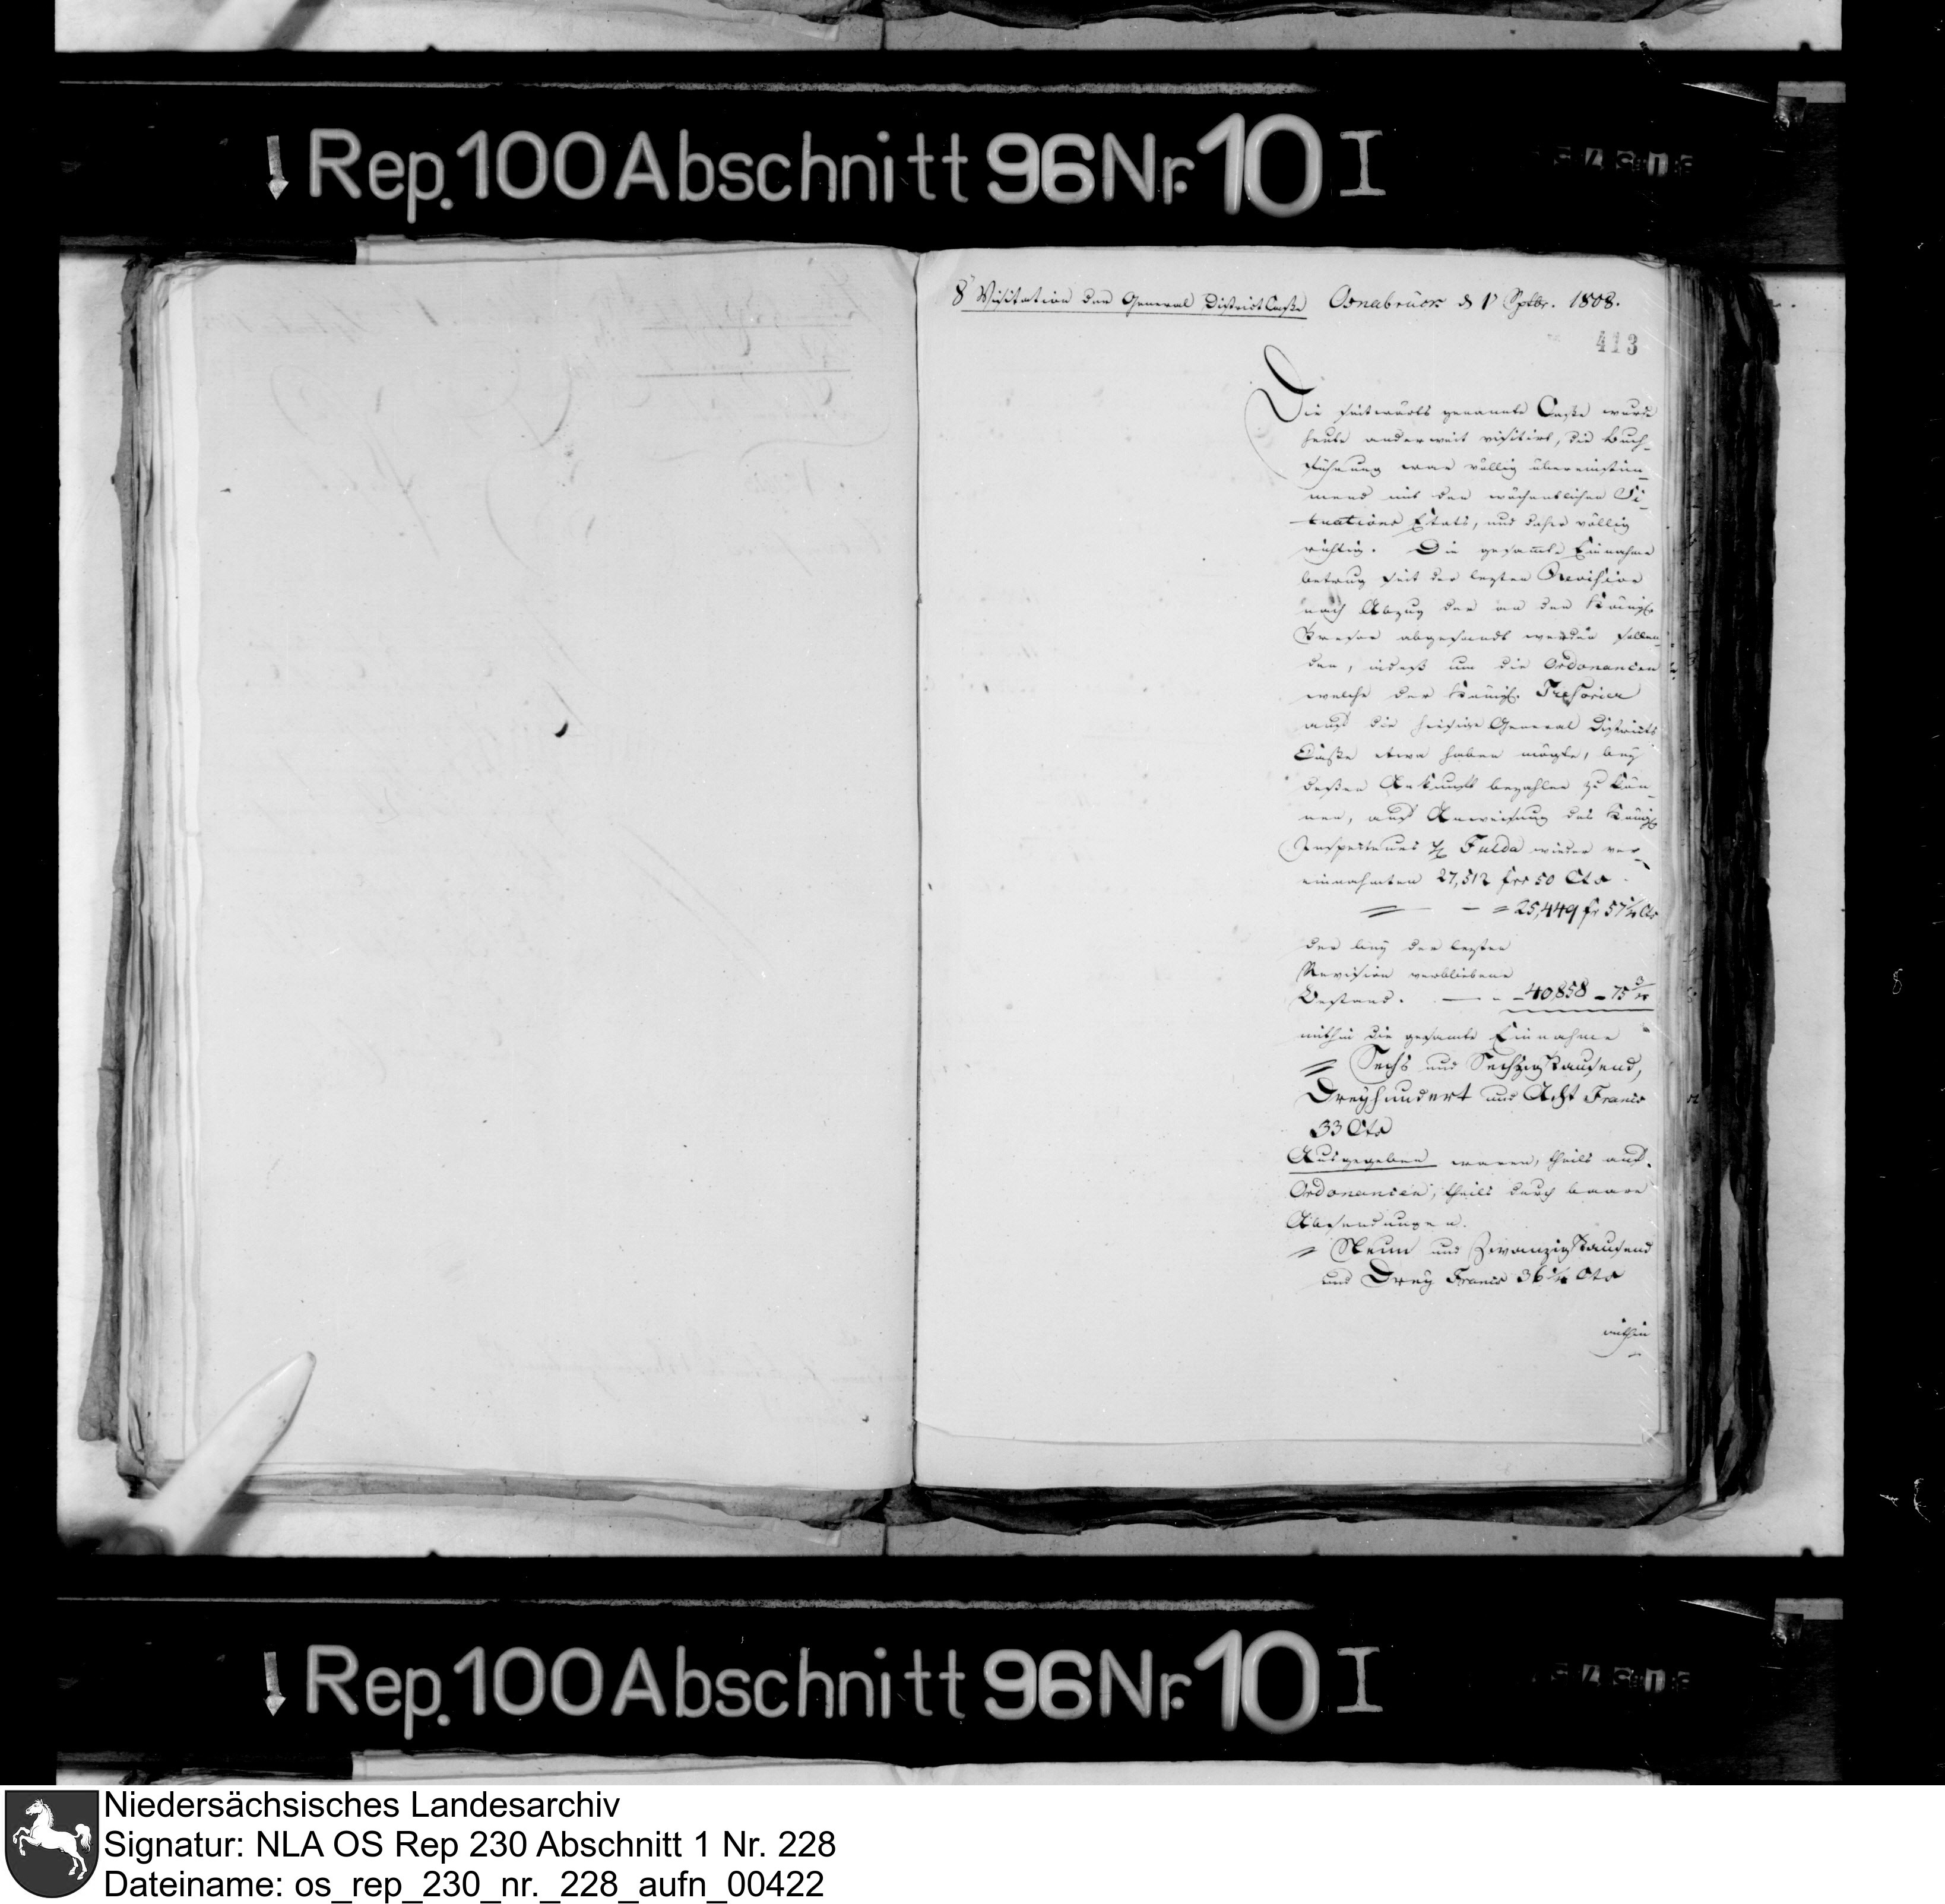 Rep. 100 Abschnitt 96 Nr. 10 I
8 Visitation der General District Casse Osnabrück d 1 Septbr. 1808.
413
Die seitwärts genannte Casse wurde
heute anderweit visitirt, die Buch-
führung war völlig übereinstim-
mend mit den wöchentlichen Si-
tuations Etats, und daher völlig
richtig. Die gesammte Einnahme
betrug seit der lezten Revision
nach Abzug der an den Königl.
Tresor abgesandt werden sollen-
den, indeß um die Ordonancen
welche der Königl. Tresorier
auf die hiesige General Districts
Casse etwa haben mögte, bey
deßen Ankunft bezahlen zu kön-
nen, auf Anweisung des Königl
Inspecteurs Fulda wieder ver-
einnahmten 27,512 frs 50 Cts
25,449 fr 57 1/4 Cts
der bey der lezten
Revision verbliebene
Bestand. 40,858 - 75
mithin die gesamte Einnahme
Sechs und Sechzigtausend,
Dreyhundert und Acht Francs
33 Cts
Ausgegeben waren, theils auf
Ordonancen, theils durch baare
Absendungen.
Neun und Zwanzigtausend
und Drey Francs 36 3/4 Cts
mithin
Rep. 100 Abschnitt 96 Nr. 10 I
Niedersächsisches Landesarchiv
Signatur: NLA OS Rep 230 Abschnitt 1 Nr. 228
Dateiname: os_rep_230_nr._228_aufn_00422